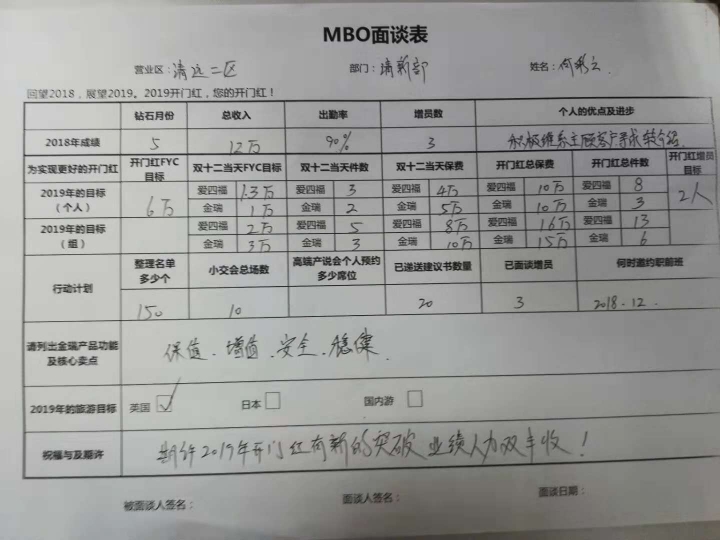 MBO面谈表
营业区：清远二区 部门：清新部 姓名：何彩云
回望2018，展望2019。2019开门红，您的开门红！
钻石月份 总收入 出勤率 增员数 个人的优点及进步
2018年成绩 5 12万 90% 3 积极维系主顾客户寻求转介绍
为实现更好的开门红 开门红FYC目标 双十二当天FYC目标 双十二当天件数 双十二当天保费 开门红总保费 开门红总件数 开门红增员目标
2019年的目标（个人） 6万 爱四福 1.3万 爱四福 3 爱四福 4万 爱四福 10万 爱四福 8 2人
金瑞 1万 金瑞 2 金瑞 5万 金瑞 10万 金瑞 3
2019年的目标（组） 爱四福 2万 爱四福 5 爱四福 8万 爱四福 16万 爱四福 13
金瑞 3万 金瑞 3 金瑞 10万 金瑞 15万 金瑞 6
行动计划 整理名单多少个 小交会总场数 高端产说会个人预约多少席位 已递送建议书数量 已面谈增员 何时邀约职前班
150 10 20 3 2018.12.
请列出金瑞产品功能及核心卖点 保值、增值、安全、稳健
2019年的旅游目标 英国 ✓ 日本 国内游
祝福与及期许 期许2019年开门红有新的突破 业绩人力双丰收！
被面谈人签名： 面谈人签名： 面谈日期：